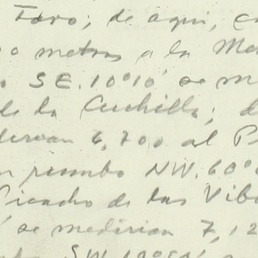 Toro; de aquí, co
0 metros a la Me
o SE. 10°10' se m
de la Cuchilla; d
dirian 6,700 al P
n rumbo NW. 60°
Picacho de las Vibo
, se medirian 7,12
SW.